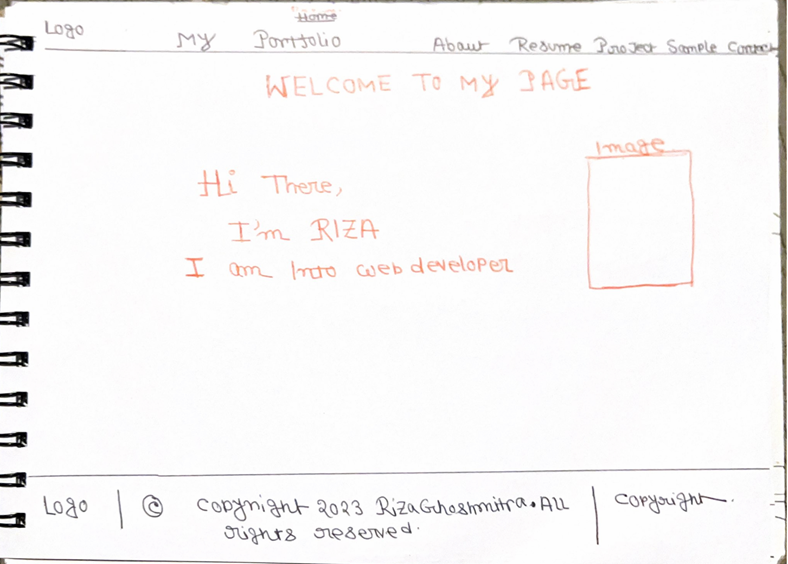 Home
Logo
My Portfolio
About Resume Project Sample Contact
WELCOME TO MY PAGE
Image
Hi There,
I'm RIZA
I am Into web developer
Logo | © copyright 2023 Riza Ghoshmitra. All | copyright.
rights reserved.